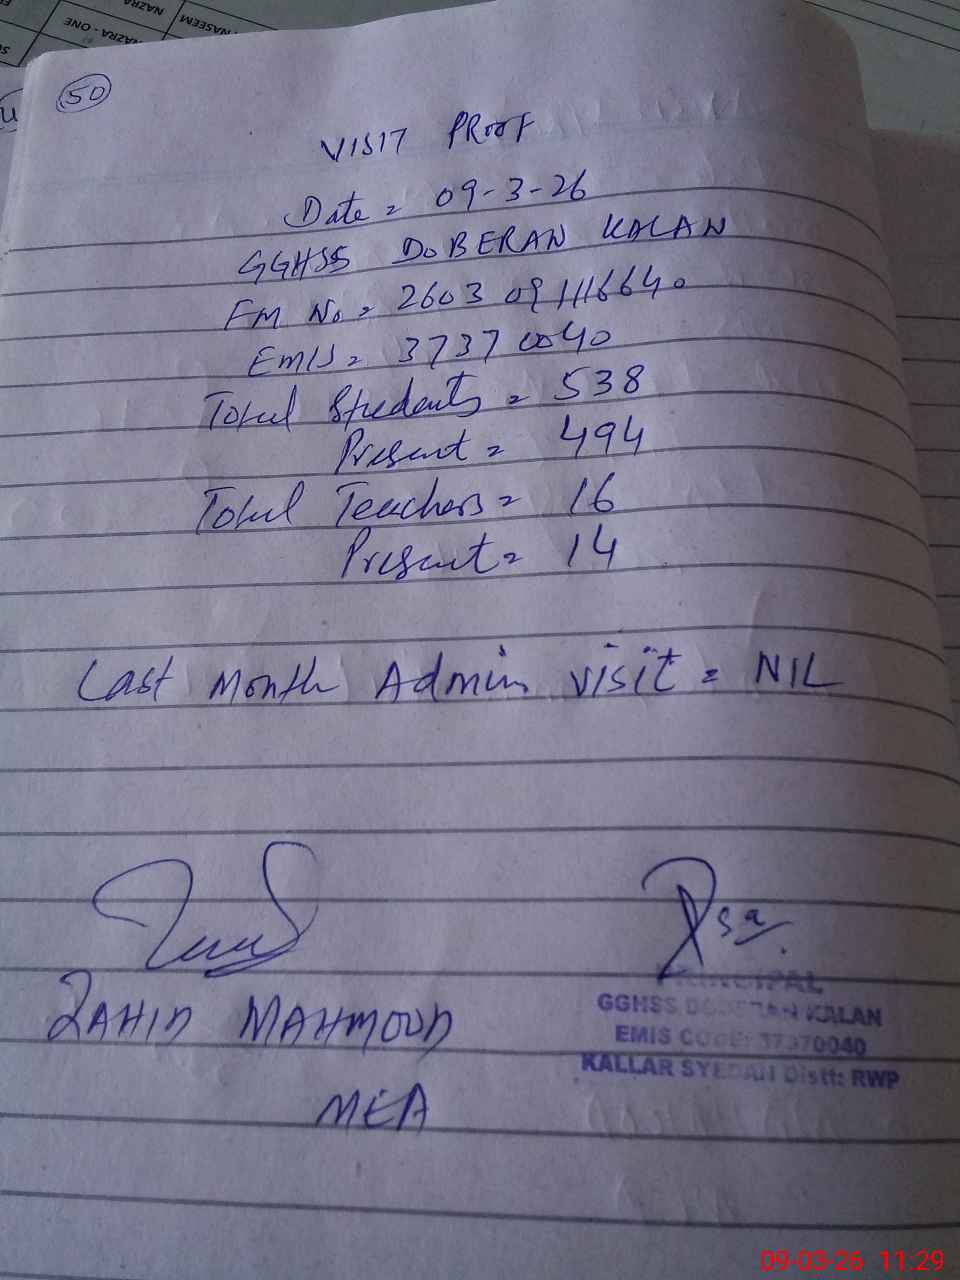 NAZRA
NASEEM
NAZRA - ONE
50
VISIT PROOF
Date = 09-3-26
GGHSS DOBERAN KALAN
FM No = 2603 09 1116640
EMIS = 37370040
Total Students = 538
Present = 494
Total Teachers = 16
Present = 14
Last Month Admin visit = NIL
ZAHID MAHMOOD
MEA
PRINCIPAL
GGHSS DOBERAN KALAN
EMIS CODE: 37370040
KALLAR SYEDAN Distt: RWP
09-03-26 11:29